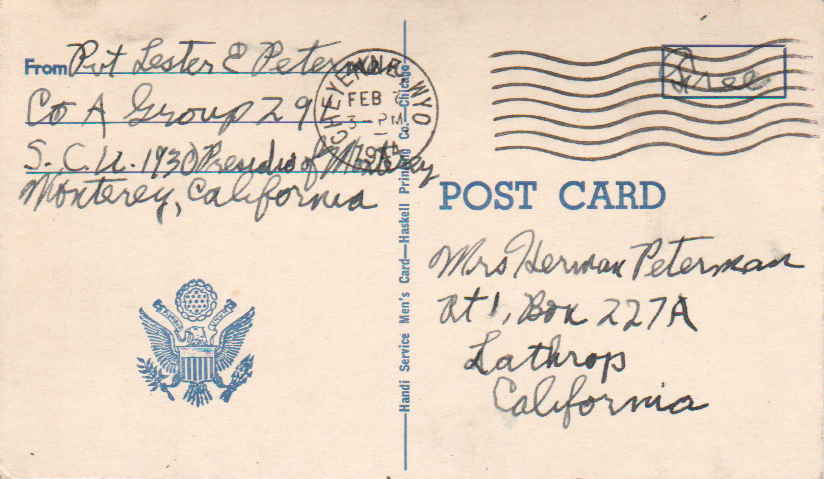 From Pvt Lester E Peterman
Co A Group 29
S.C.U. 1930 Presidio of Monterey
Monterey, California
CHEYENNE WYO
FEB
3 - PM
Handi Service Men's Card—Haskell Printing Co.—Chicago
Free
POST CARD
Mrs Herman Peterman
Rt 1, Box 227A
Lathrop
California